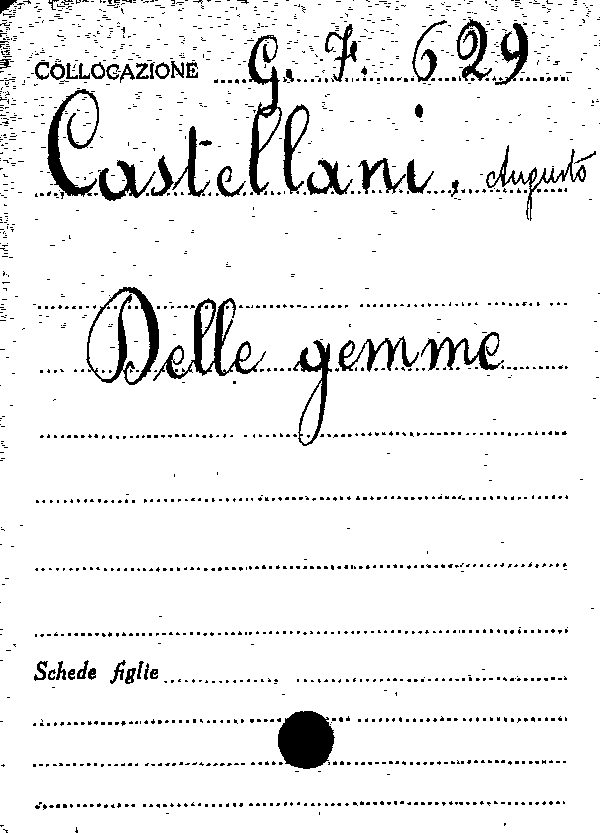 COLLOCAZIONE G. F. 629
Castellani, Augusto
Delle gemme
Schede figlie